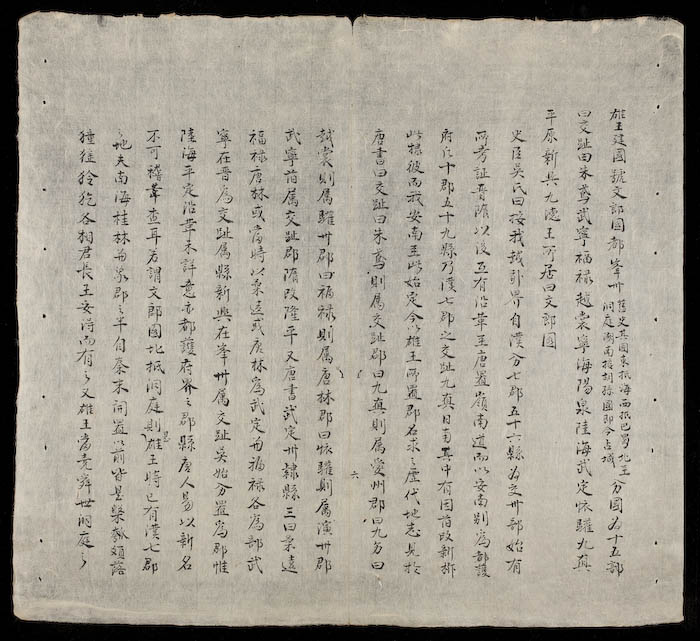 雄王建國號文郎國都峯州 舊史其國東抵海西抵巴蜀北至洞庭湖南接胡孫國即今占城 分國為十五部
曰交趾曰朱鳶武寧福禄越裳寧海陽泉陸海武定懷驩九真
平原新興九德王所居曰文郎國
史臣吳氏曰按我越引界自漢分七郡五十六縣為交州部始有
所考証晋隋以後互有沿革至唐置嶺南道而以安南别為都護
府后十郡五十九縣乃漢七郡之交趾九真日南其中有因舊改新析
此據彼而我安南至此始定今以雄王所置郡名求之歷代地志見於
唐書曰交趾曰朱鳶則属交趾郡曰九真則属愛州郡曰九 曰
越裳則属驩州郡曰福禄則属唐林郡曰懷驩則属演州郡
武寧前属交趾郡隋改隆平又唐書武定州隷縣三曰柔遠
福禄唐林或當時以柔遠或唐林為武定而福禄各為部武
寧在晋為交趾属縣新興在峯州属交趾吳始分置為郡惟
陸海平定沿革未詳意亦都護府界之郡縣唐人易以新名
不可稽輩查耳若謂文郎國地抵洞庭則雄王時已有漢七郡
之地夫南海桂林而象郡之半自秦末開置以前皆是槃瓠頭落
獞獠狑犵各相君長王安得而有之又雄王當堯舜世洞庭之
六